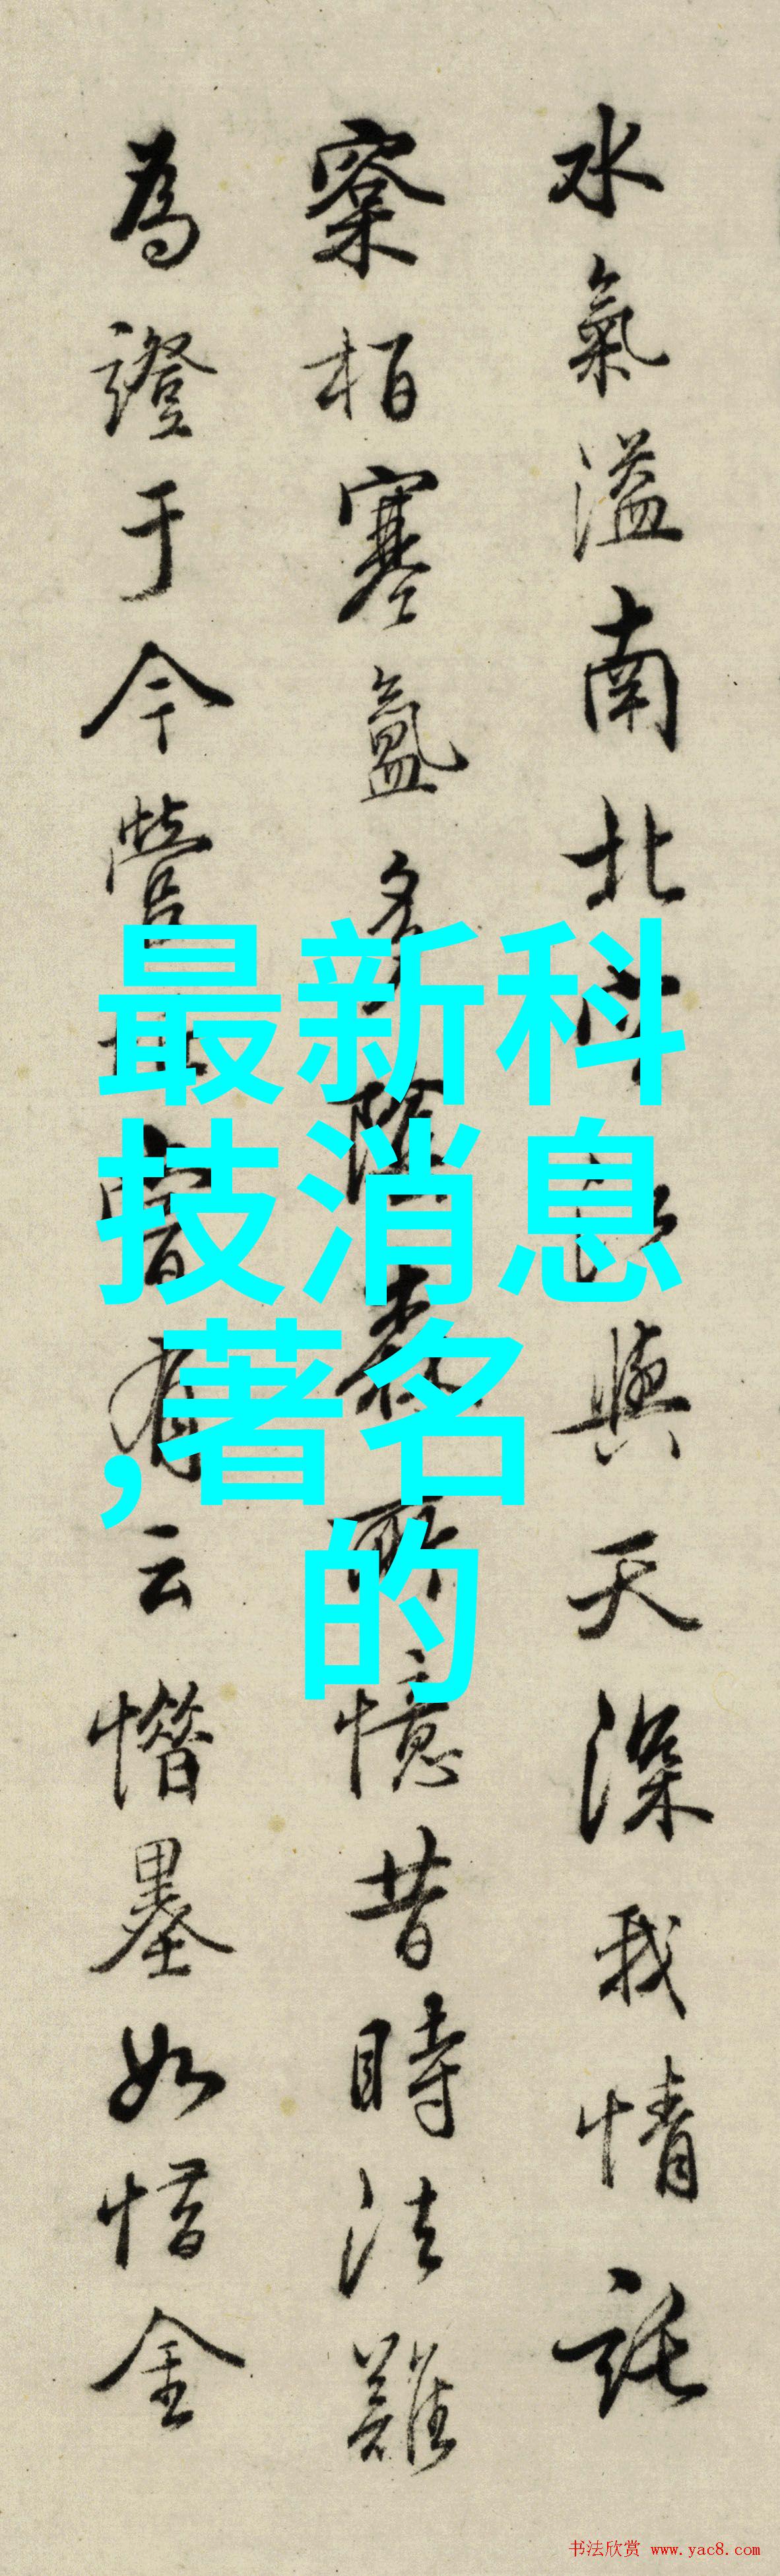 水氣溢南北
與天深我情託
寀栢塞氳多陰
所憶昔時法難
為證于今嘗
有云惜墨如惜金
最新科
技消息
,著名
的
书法欣赏 www.yac8.com